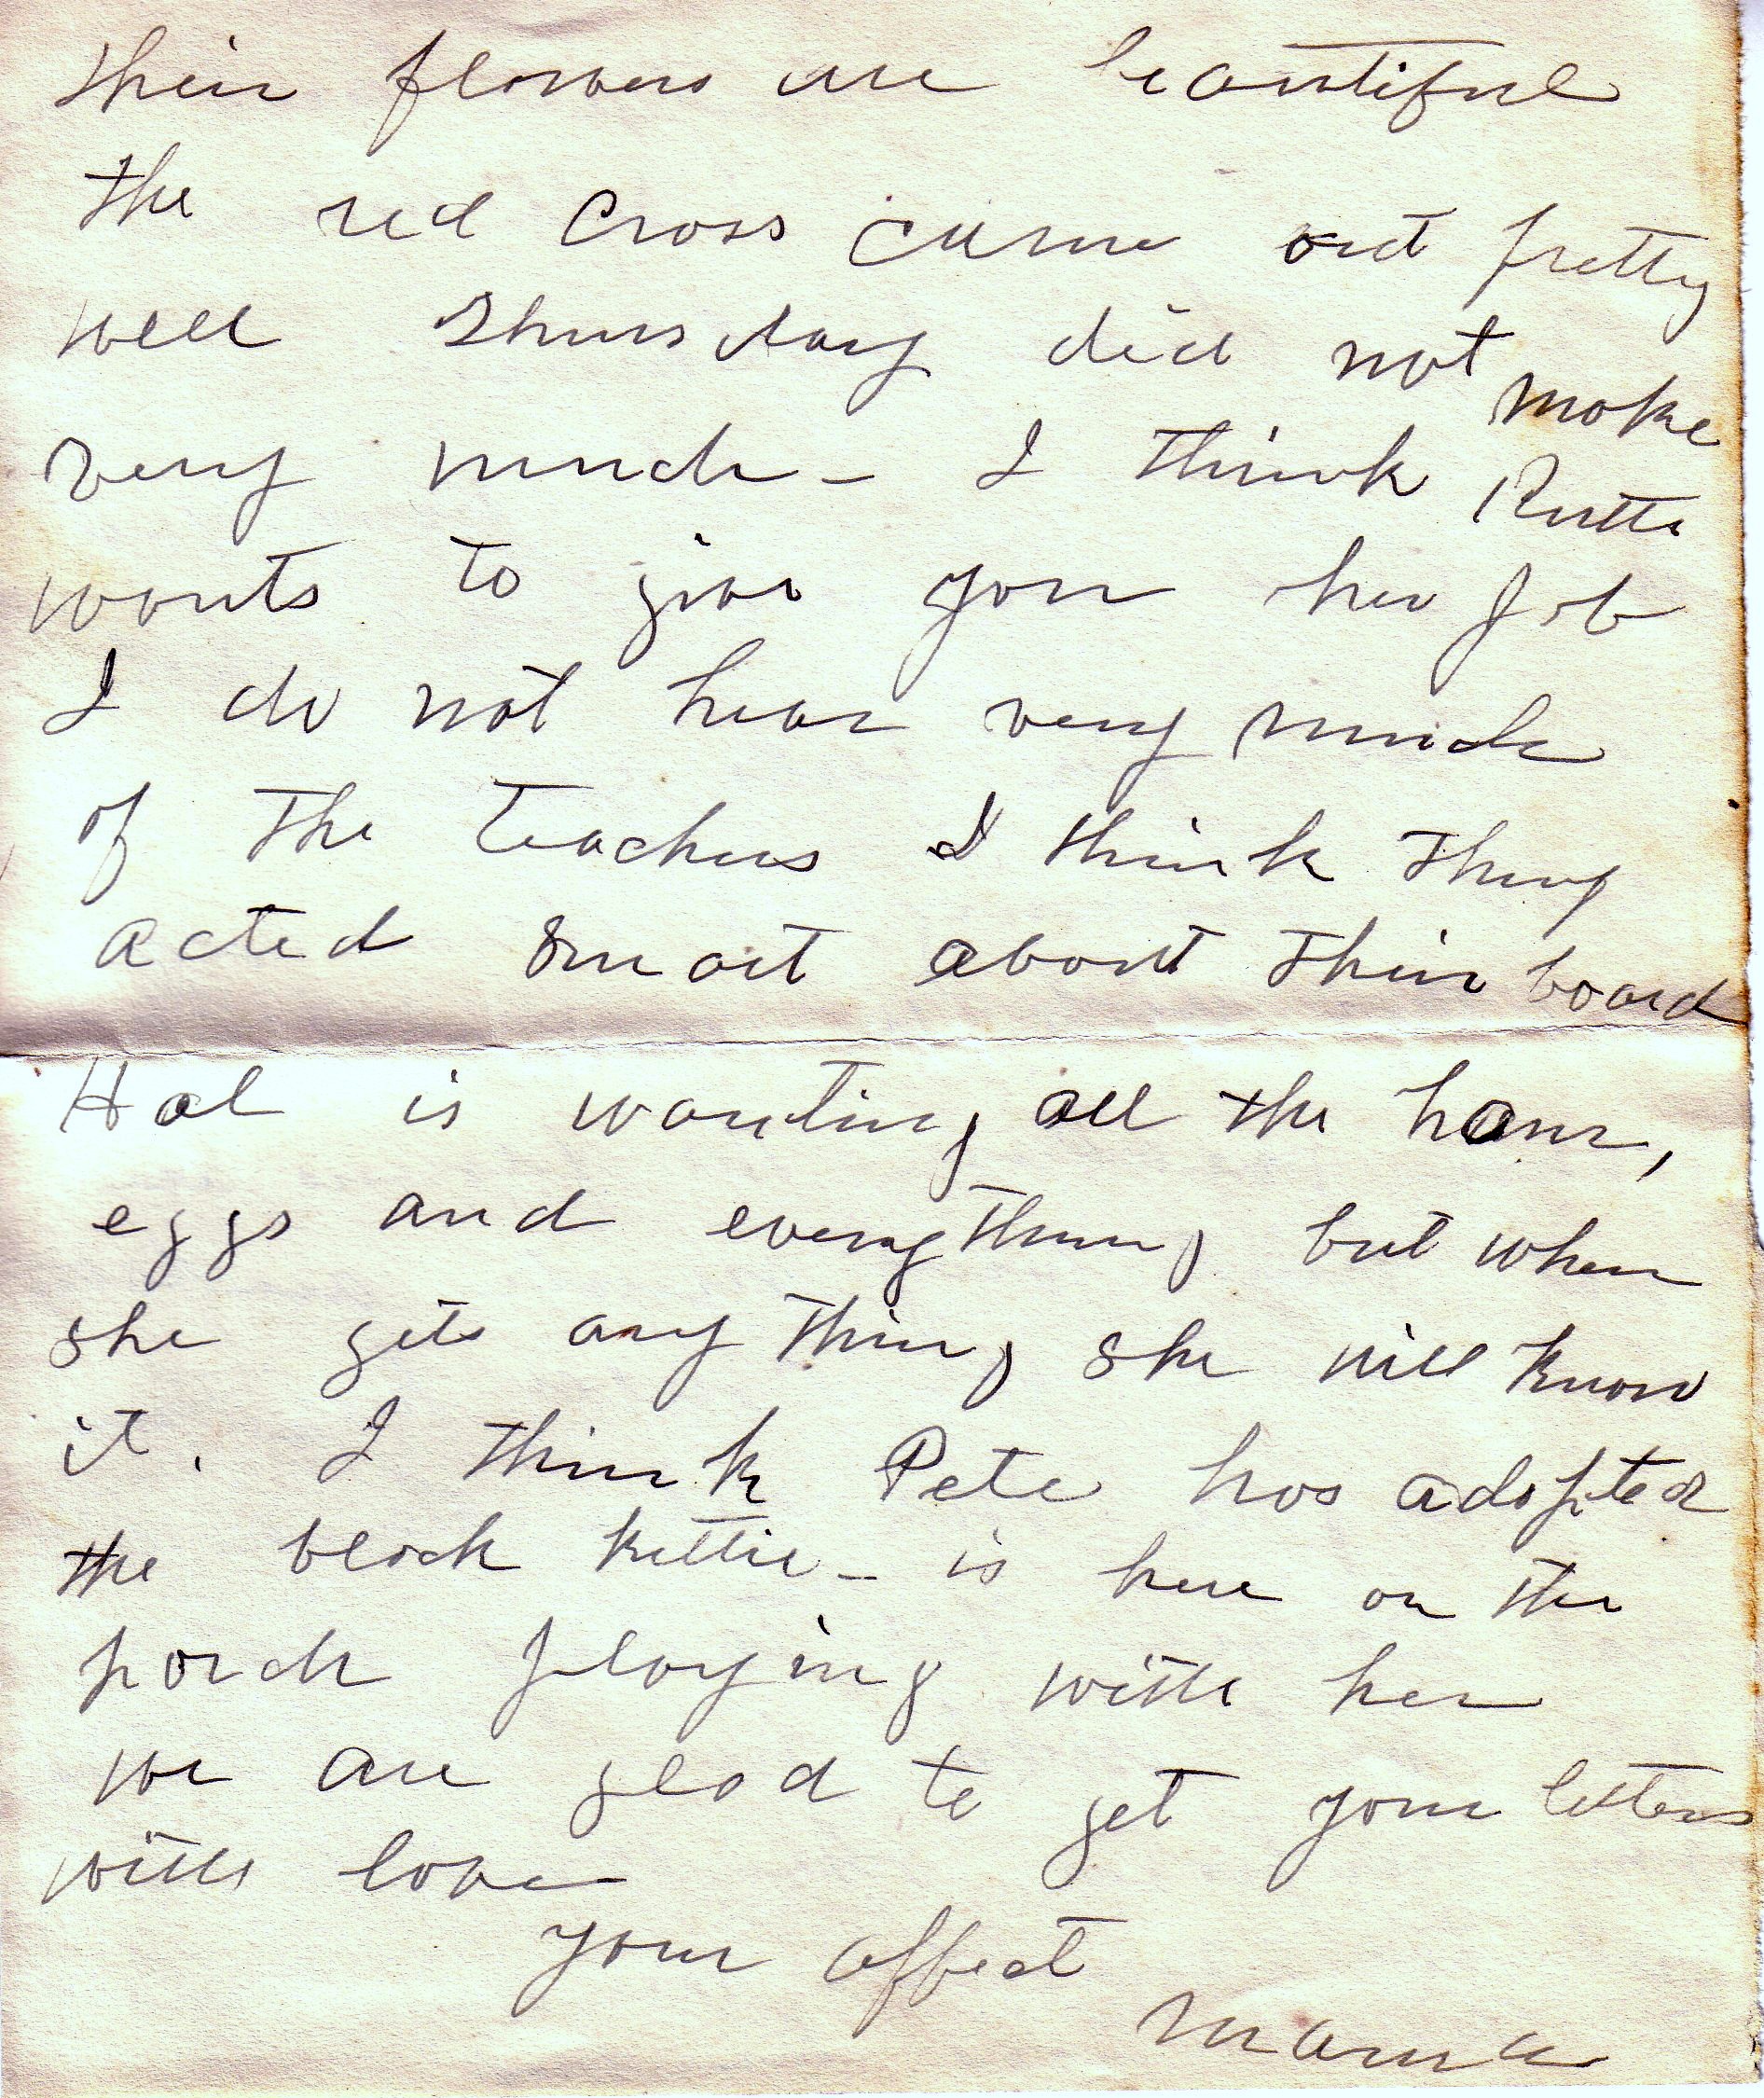 their flowers are beautiful
the red Cross came out pretty
well Thursday did not make
very much - I think Ruth
wants to give you her job
I do not hear very much
of the teachers I think they
acted smart about their board
Hal is wanting all the ham,
eggs and everything but when
she gets anything she will know
it. I think Pete has adopted
the black kittie - is here on the
porch playing with her
we are glad to get your letters
with love
your affect
Mama